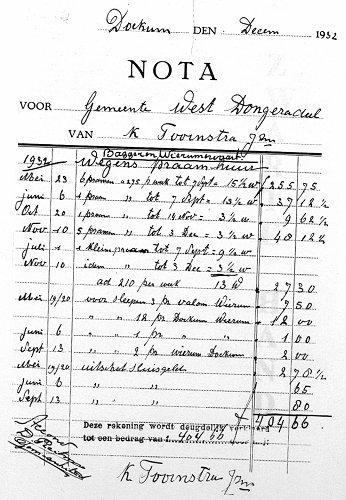 Dockum DEN Decem 1932
NOTA
VOOR Gemeente West Dongeradeel
VAN K Toornstra Jzn
Baggeren Wierumvaart
1932 Wegens praamhuur
Mei 23 6 pramen 2.75 p week tot 7 Sept = 15½ w 255 75
juni 6 1 pram „ tot 7 Sept = 13½ w 37 12½
Oct 20 1 pram „ tot 14 Nov = 3½ w 9 62½
Nov 10 5 pramen „ tot 3 Dec = 3½ w 48 12½
juli 1 1 klein praam tot 7 Sept = 9½ w
Nov 10 idem „ tot 3 Dec = 3½ w
ad 210 per week 13 w 27 30
Mei 19/20 voor sleepen 3 pr van Wierum 7 50
„ „ 12 pr Dockum Wierum 12 00
juni 6 „ „ 1 pr „ „ 1 00
Sept 13 „ „ 2 pr Wierum Dockum 2 00
Mei 19/20 uitschot sluisgeld 2 78½
juni 6 „ „ 65
Sept 13 „ „ 80
404 66
Deze rekening wordt deugdelijk verklaard
tot een bedrag van f 404 66
K Toornstra Jzn